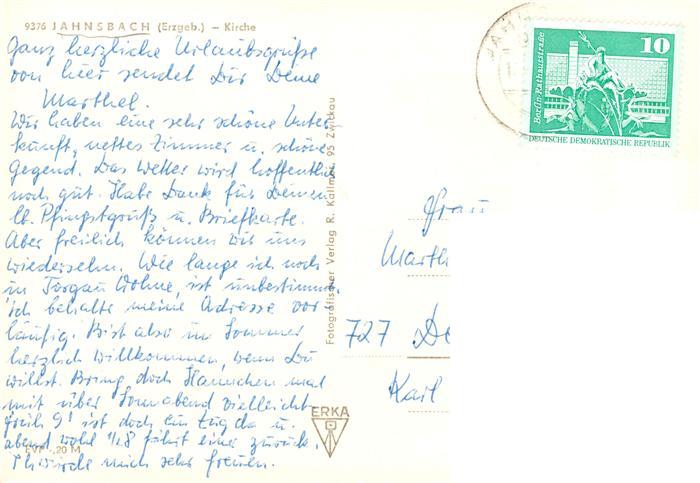 9376 JAHNSBACH (Erzgeb.) – Kirche
Ganz herzliche Urlaubsgrüße
von hier sendet Dir Deine
Marthel.
Wir haben eine sehr schöne Unter
kunft, nettes Zimmer u. schöne
Gegend. Das Wetter wird hoffentlich
noch gut. Habe Dank für Deinen
lb. Pfingstgruß u. Briefkarte.
Aber freilich können wir uns
wiedersehn. Wie lange ich noch
in Torgau wohne, ist unbestimmt.
Ich behalte meine Adresse vor-
läufig. Bist also im Sommer
herzlich willkommen, wenn Du
willst. Bring doch Hannchen mal
mit über Sonnabend vielleicht
früh 9! ist doch ein Zug da u.
abend wohl 1/2 8 fährt einer zurück.
Ich würde mich sehr freuen.
EVP -,20 M
Fotografischer Verlag R. Kallmer, 95 Zwickau
ERKA
JAHN
Berlin, Rathausstraße
10
DEUTSCHE DEMOKRATISCHE REPUBLIK
Frau
Marth
727 De
Karl